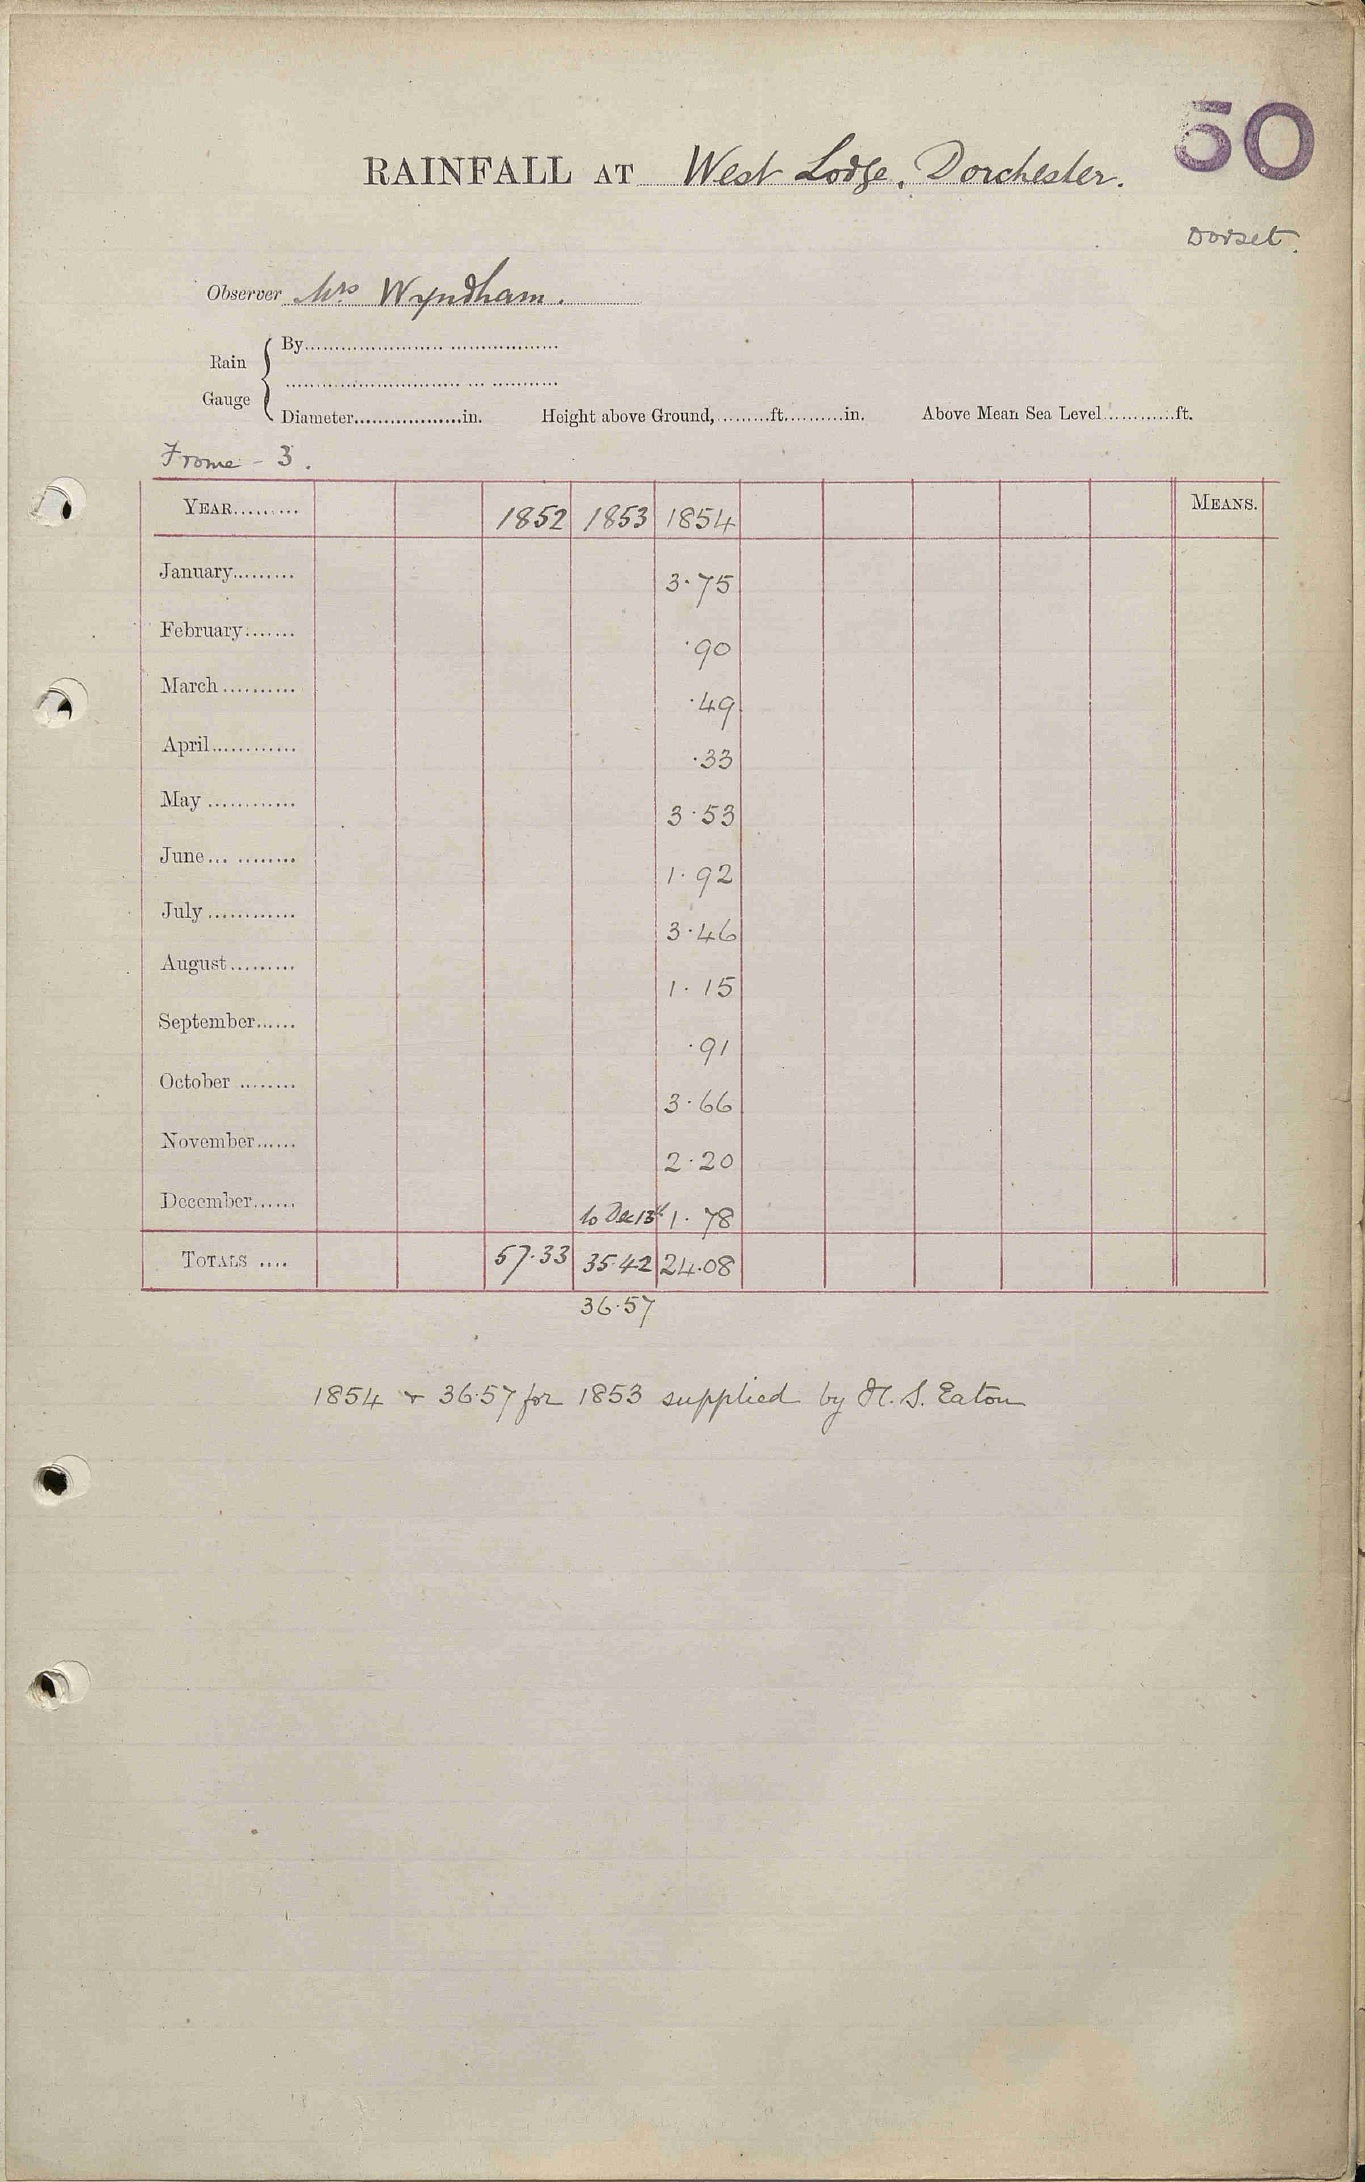 50
RAINFALL AT West Lodge, Dorchester.
Dorset.
Observer Mrs Wyndham.
Rain Gauge { By
Diameter..................in. Height above Ground, .........ft..........in. Above Mean Sea Level............ft.
Frome - 3.
YEAR......... 1852 1853 1854 MEANS.
January......... 3.75
February....... .90
March.......... .49
April............ .33
May ............ 3.53
June... ........ 1.92
July ............ 3.46
August......... 1.15
September...... .91
October ........ 3.66
November...... 2.20
December...... to Dec 13th 1.78
TOTALS .... 57.33 35.42 24.08
36.57
1854 & 36.57 for 1853 supplied by H. S. Eaton